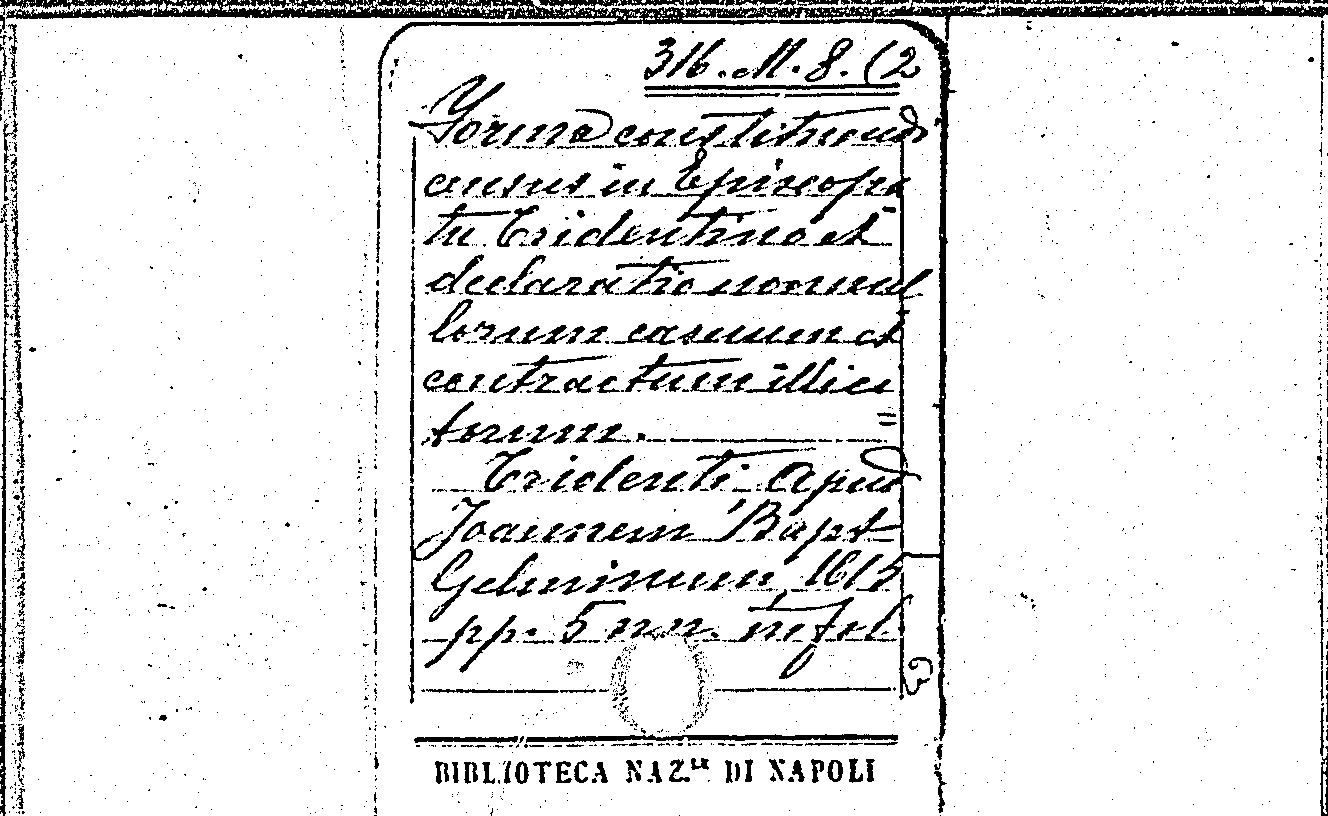 316. M. 8. (2
Forma constituendi
census in Episcopa
tu Tridentino et
declaratio nonnul
lorum casuum et
contractum illici
torum.
Tridenti apud
Joannem Bapt
Gelminum, 1615
pp. 5 nn. in fol.
BIBLIOTECA NAZ.LE DI NAPOLI